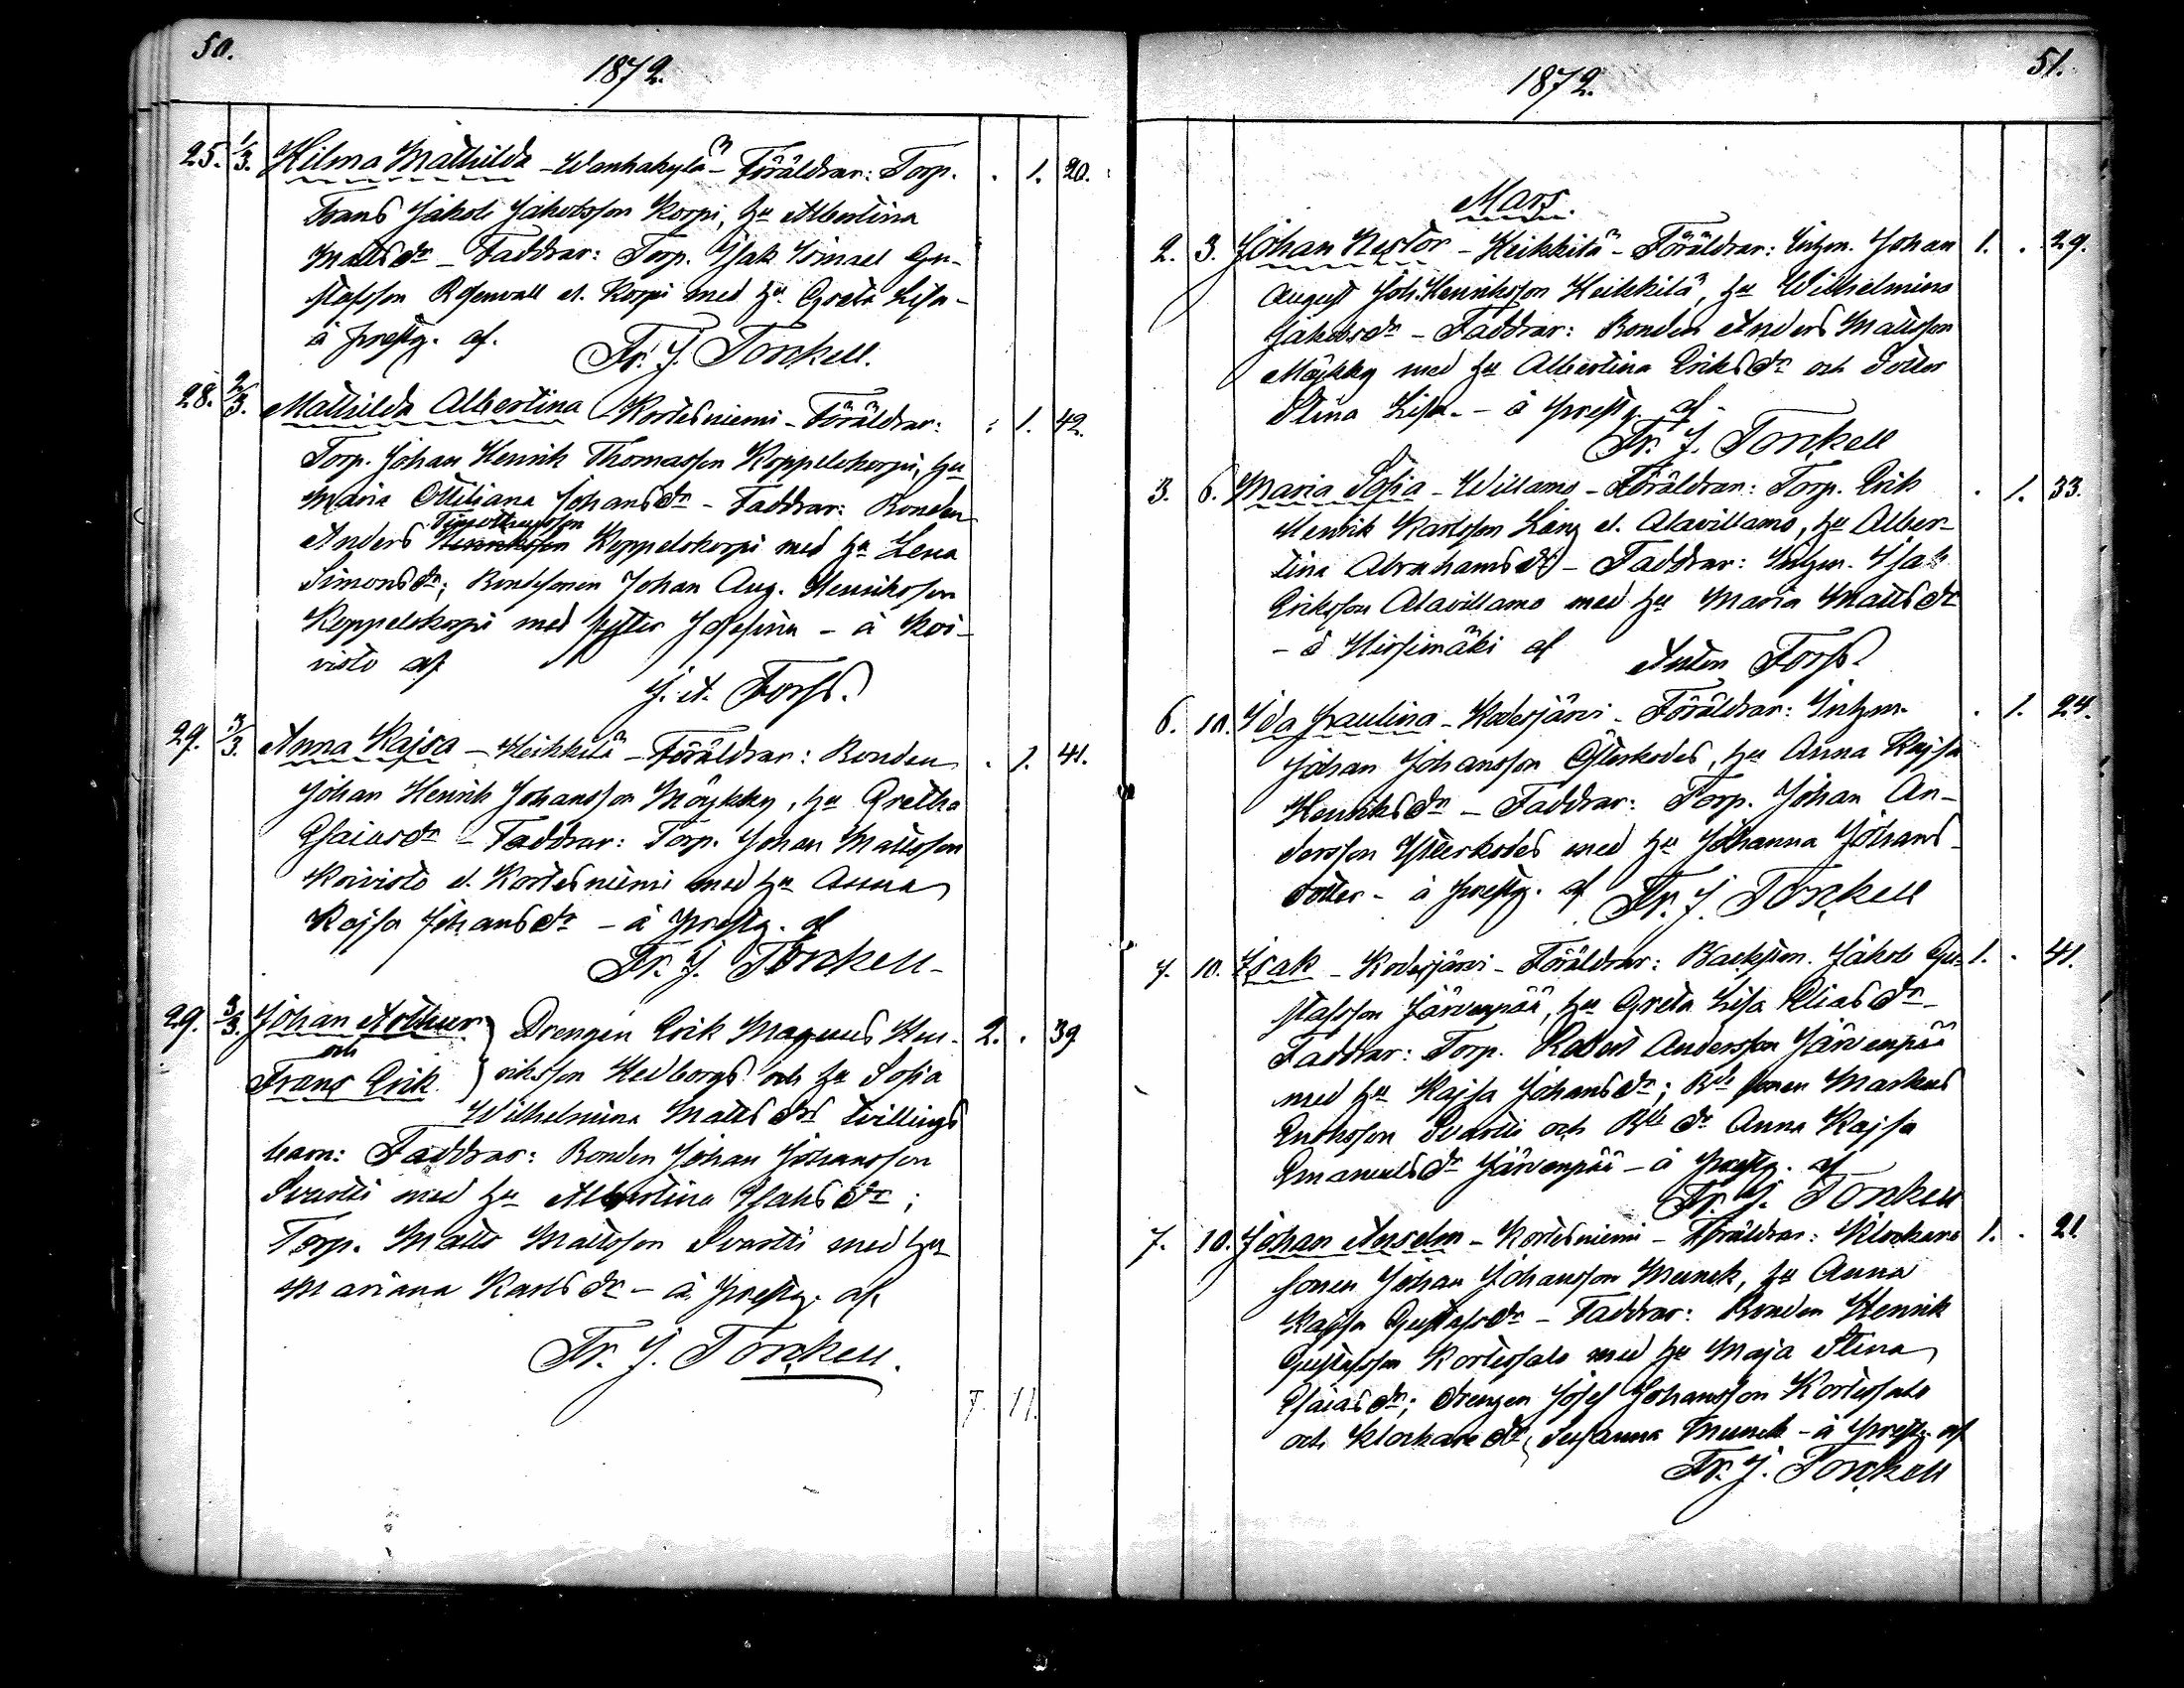 50.
1872.
25. 1/3. Hilma Mathilda - Wanhakylä - Föräldrar: Torp. . 1. 20.
Frans Jakob Jakobsson Korpi, hu Albertina
Mattsdr - Faddrar: Torp. Isak Ismael Gu-
stafsson Rosenvall el. Korpi med hu Greta Lisa -
å prestg. af.
Fr. J. Torckell.
28. 2/3. Mathilda Albertina Kortesniemi - Föräldrar: : 1. 42.
Torp. Johan Henrik Thomasson Koppelokorpi, hu
Maria Ottiliana Johansdr - Faddrar: Bonden
Timotheusson
Anders Henriksson Koppelokorpi med hu Lena
Simonsdr; Bondesonen Johan Aug. Henriksson
Koppelokorpi med syster Josefina - å Koi-
visto af
J. A. Forss.
29. 3/3. Anna Kajsa - Heikkilä - Föräldrar: Bonden . 1. 41.
Johan Henrik Johansson Möykky, hu Gretha
Esaiasdr - Faddrar: Torp. Johan Mattsson
Koivisto el. Kortesniemi med hu Anna
Kajsa Johansdr - å prestg. af
Fr. J. Torckell -
29. 3/3. Johan Arthur } Drengen Erik Magnus Hen- 2. . 39
och
Frans Erik } riksson Hedborgs och hu Sofia
Wilhelmina Mattsdrs tvillings
barn: Faddrar: Bonden Johan Johansson
Svartti med hu Albertina Isaksdr;
Torp. Matts Mattsson Svartti med hu
Mariana Karlsdr - å prestg. af.
Fr. J. Torckell.
7. 11.
1872.
51.
Mars.
2. 3. Johan Nestor - Heikkilä - Föräldrar: Inhm. Johan 1. . 29.
August Joh. Henriksson Heikkilä, hu Wilhelmina
Jakobsdr - Faddrar: Bonden Anders Mattsson
Möykky med hu Albertina Eriksdr och dotter
Stina Lisa - å prestg. af -
Fr. J. Torckell
3. 6. Maria Sofia - Willamo - Föräldrar: Torp. Erik . 1. 33.
Henrik Karlsson Lång el. Alavillamo, hu Alber-
tina Abrahamsdr - Faddrar: Inhm. Isak
Eriksson Alavillamo med hu Maria Mattsdr
- å Hirsimäki af Anten Forss.
6. 10. Ida Paulina - Kodesjärvi - Föräldrar: Inhm. . 1. 24.
Johan Johansson Ytterkodes, hu Anna Kajsa
Henriksdr - Faddrar: Torp. Johan An-
dersson Ytterkodes med hu Johanna Johans-
dotter - å prestg. af Fr. J. Torckell
7. 10. Isak - Kodesjärvi - Föräldrar: Backstm. Jakob Gu- 1. . 41.
stafsson Järvenpää, hu Greta Lisa Eliasdr -
Faddrar: Torp. Robert Andersson Järvenpää
med hu Kajsa Johansdr; Bde sonen Markus
Enoksson Svartti och Bde dr Anna Kajsa
Emanuelsdr Järvenpää - å prestg. af
Fr. J. Torckell
7. 10. Johan Anselm - Kortesniemi - Föräldrar: Klockare 1. . 21
sonen Johan Johansson Munck, hu Anna
Kajsa Gustafsdr - Faddrar: Bonden Henrik
Gustafsson Kortessalo med hu Maja Stina
Esaiasdr; drengen Josef Johansson Kortessalo
och Klockare dr Susanna Munck - å prestg. af
Fr. J. Torckell